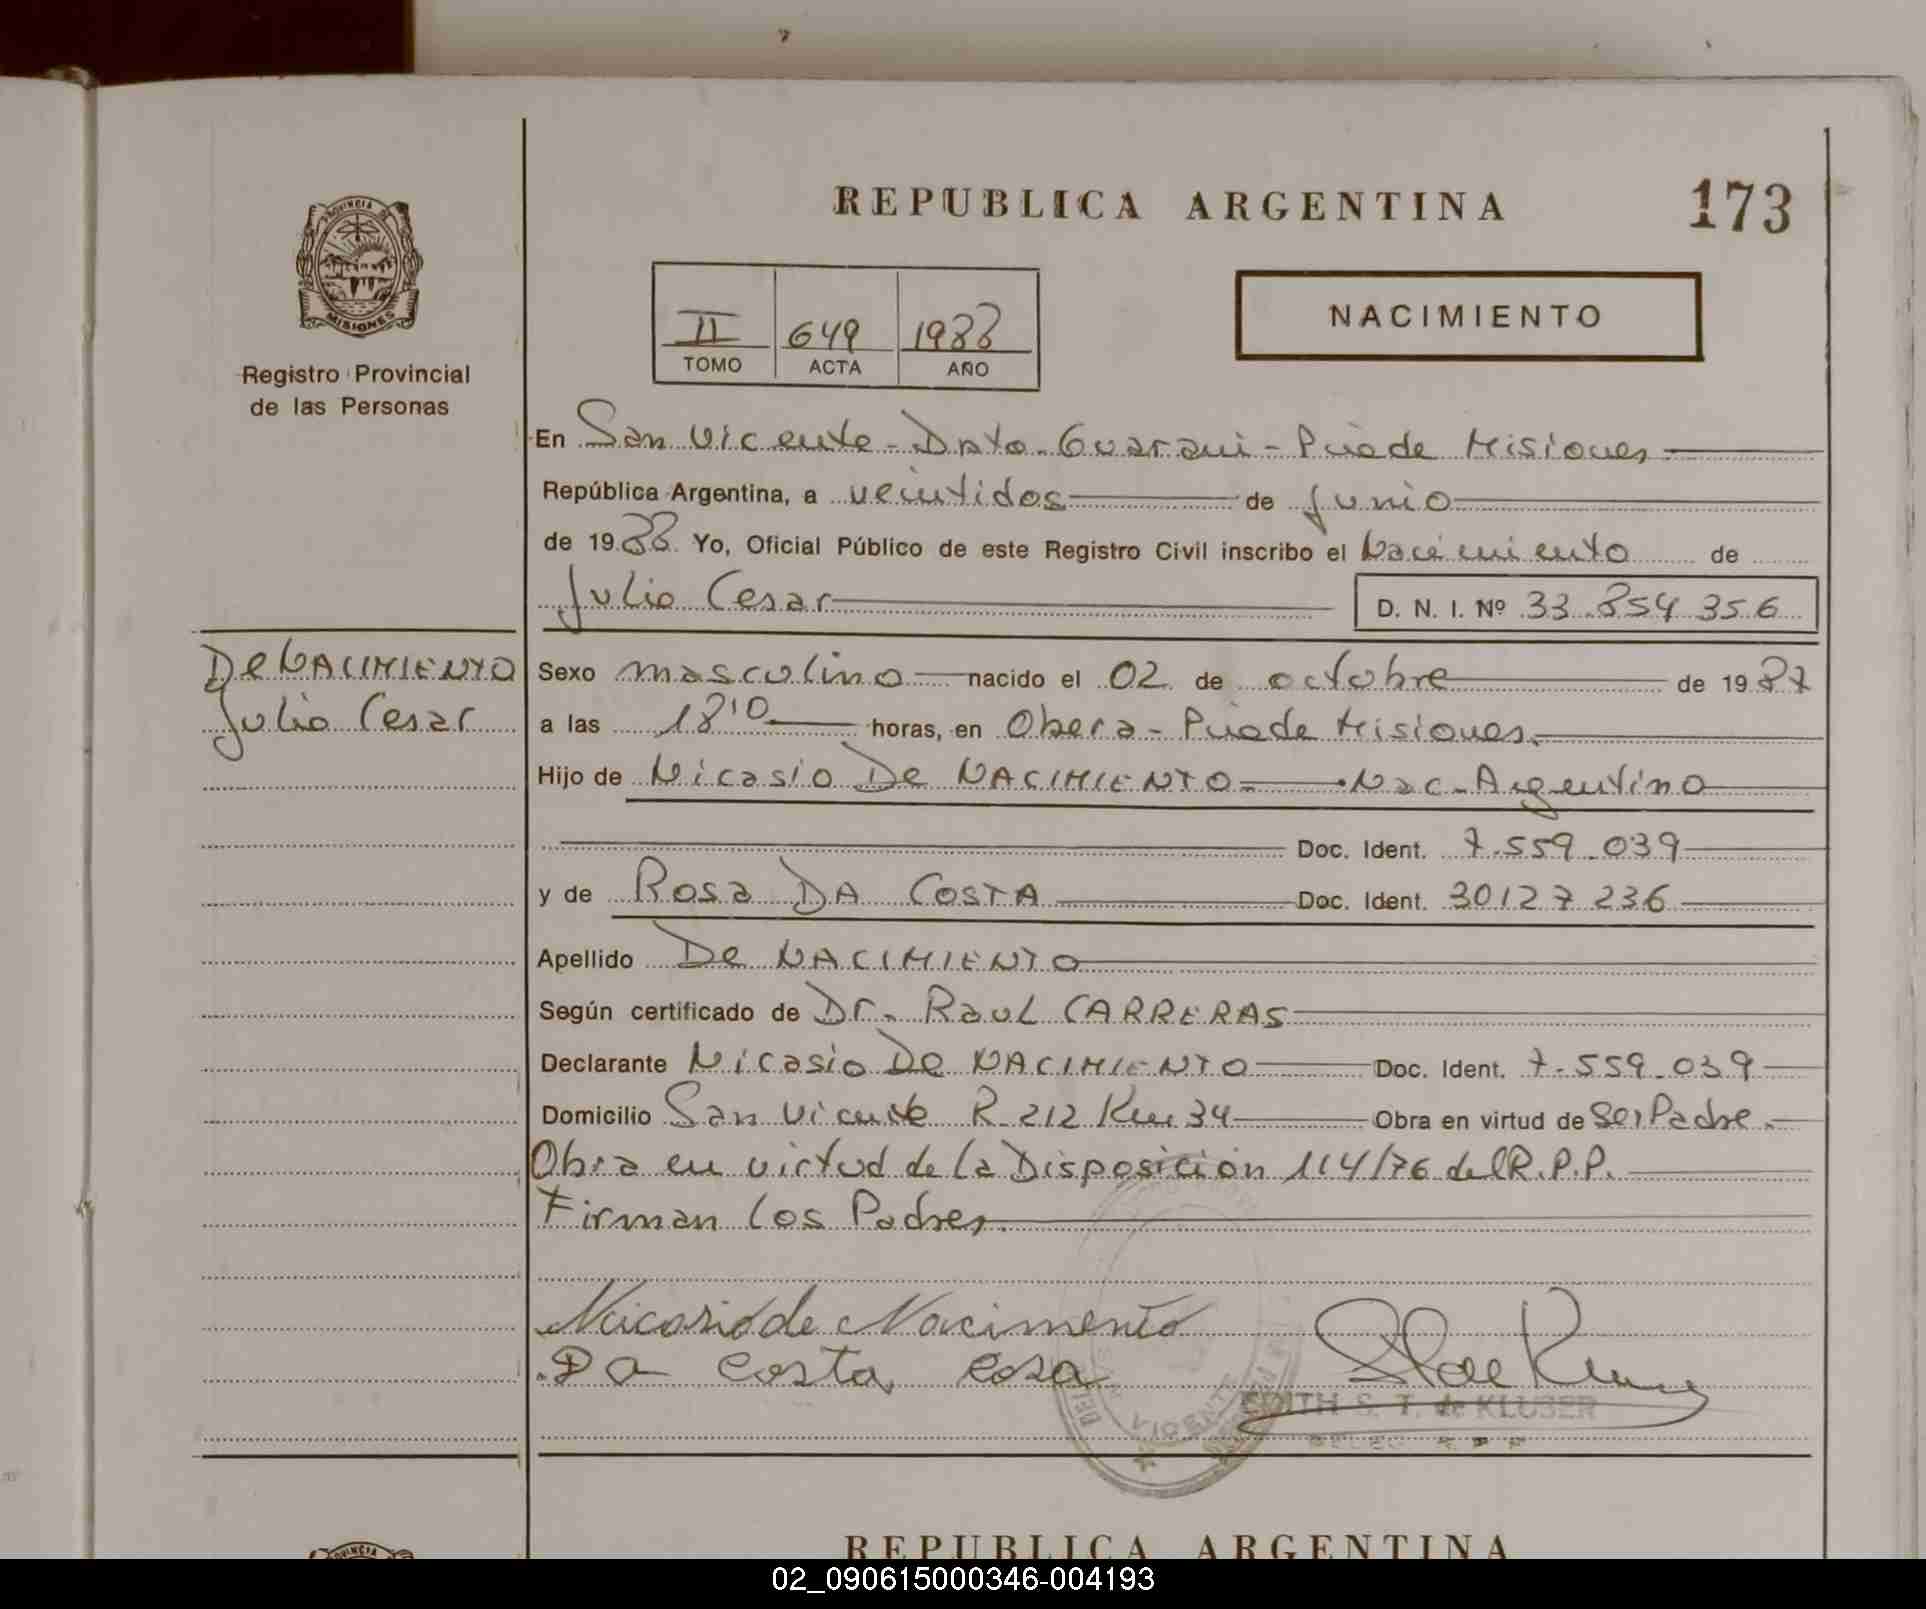 PROVINCIA DE
MISIONES
Registro Provincial
de las Personas
REPUBLICA ARGENTINA
173
II 649 1988
TOMO ACTA AÑO
NACIMIENTO
En San Vicente - Dpto. Guarani - Pcia de Misiones
República Argentina, a veintidos de Junio
de 1988 Yo, Oficial Público de este Registro Civil inscribo el Nacimiento de
Julio Cesar D. N. I. Nº 33.854.356
De NACIMIENTO
Julio Cesar
Sexo masculino nacido el 02 de octubre de 1987
a las 18'10 horas, en Obera - Pcia de Misiones.
Hijo de Nicasio De NACIMIENTO - Nac. Argentino
Doc. Ident. 7.559.039
y de Rosa DA COSTA Doc. Ident. 30127236
Apellido De NACIMIENTO
Según certificado de Dr. Raul CARRERAS
Declarante Nicasio De NACIMIENTO Doc. Ident. 7.559.039
Domicilio San Vicente R. 212 Km 34 Obra en virtud de Ser Padre.
Obra en virtud de la Disposición 114/76 del R.P.P.
Firman los Padres.
Nicasio de Nacimento
Da Costa Rosa
EDITH S. T. de KLUSER
VICENTE
REPUBLICA ARGENTINA
PROVINCIA
02_090615000346-004193